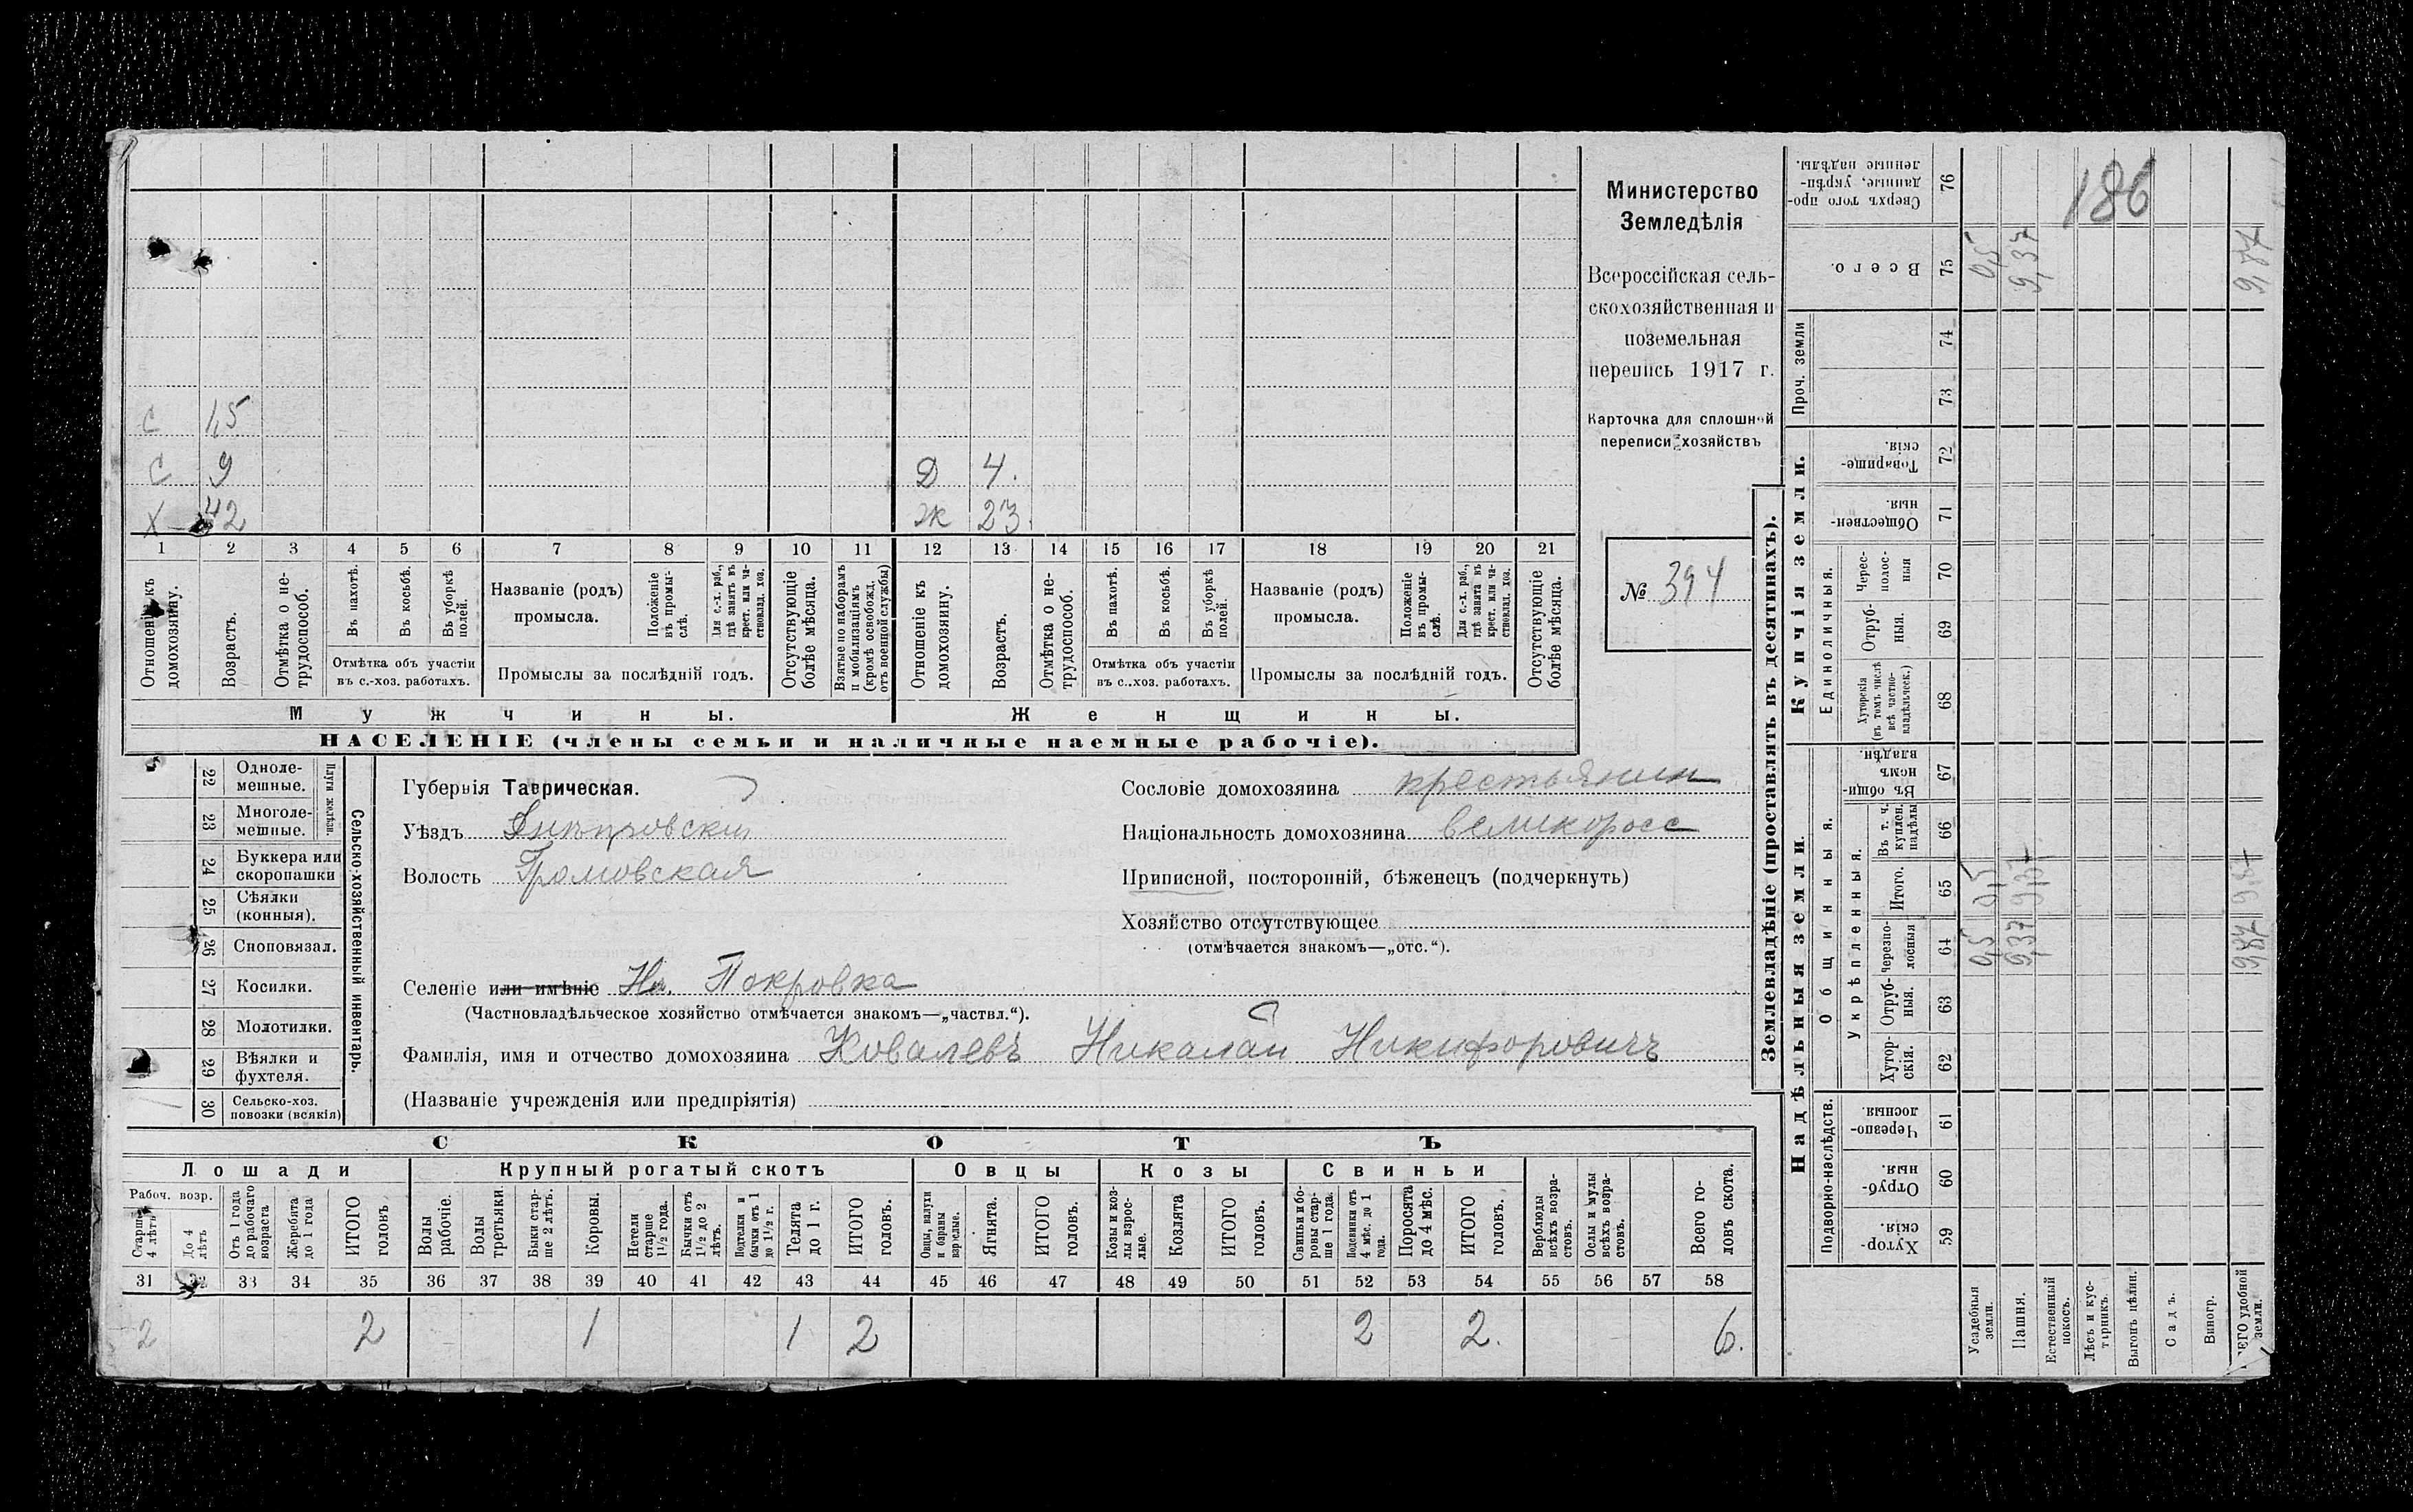 Министерство
Земледѣлія
Всероссійская сель-
скохозяйственная и
поземельная
перепись 1917 г.
Карточка для сплошной
переписи хозяйствъ
№ 394
186
С 1,5
С 9 Д 4.
Х 42 Ж 23.
1 2 3 4 5 6 7 8 9 10 11 12 13 14 15 16 17 18 19 20 21
Отношеніе къ домохозяину.
Возрастъ.
Отмѣтка о нетрудоспособ.
Въ пахотѣ.
Въ косьбѣ.
Въ уборкѣ полей.
Отмѣтка объ участіи
въ с.-хоз. работахъ.
Названіе (родъ)
промысла.
Положеніе въ промы-слѣ.
Для с.-х. раб., гдѣ занятъ въ крест. или частновлад. хоз.
Промыслы за послѣдній годъ.
Отсутствующіе болѣе мѣсяца.
Взятые по наборамъ и мобилизаціямъ (кромѣ освобожд. отъ военной службы)
Отношеніе къ домохозяину.
Возрастъ.
Отмѣтка о не-трудоспособ.
Въ пахотѣ.
Въ косьбѣ.
Въ уборкѣ полей.
Отмѣтка объ участіи
въ с.-хоз. работахъ.
Названіе (родъ)
промысла.
Положеніе въ промы-слѣ.
Для с.-х. раб., гдѣ занята въ крест. или ча-стновлад. хоз.
Промыслы за послѣдній годъ.
Отсутствующіе болѣе мѣсяца.
Мужчины. Женщины.
НАСЕЛЕНІЕ (члены семьи и наличные наемные рабочіе).
22 Одноле-мешные.
23 Многоле-мешные.
Плуги желѣзн.
24 Буккера или скоропашки
25 Сѣялки (конныя).
26 Сноповязал.
27 Косилки.
28 Молотилки.
29 Вѣялки и фухтеля.
30 Сельско-хоз. повозки (всякія)
Сельско-хозяйственный инвентарь.
Губернія Таврическая.
Уѣздъ Днѣпровскій
Волость Громовская
Сословіе домохозяина крестьянин
Національность домохозяина великоросс
Приписной, посторонній, бѣженецъ (подчеркнуть)
Хозяйство отсутствующее
(отмѣчается знакомъ—„отс.“).
Селеніе или имѣніе Нв. Покровка
(Частновладѣльческое хозяйство отмѣчается знакомъ—„частвл.“).
Фамилія, имя и отчество домохозяина Ковалевъ Николай Никифоровичъ
(Названіе учрежденія или предпріятія)
СКОТЪ
Лошади Крупный рогатый скотъ Овцы Козы Свиньи
Рабоч. возр.
Старше 4 лѣтъ
До 4 лѣтъ
Отъ 1 года до рабочаго возраста
Жеребята до 1 года
ИТОГО головъ
Волы рабочіе.
Волы третьяки.
Быки стар-ше 2 лѣтъ.
Коровы.
Нетели старше 1 1/2 года.
Бычки отъ 1 1/2 до 2 лѣтъ.
Подтелки и бычки отъ 1 до 1 1/2 г.
Телята до 1 г.
ИТОГО головъ.
Овцы, валухи и бараны взрослые.
Ягнята.
ИТОГО головъ.
Козы и коз-лы взрос-лые.
Козлята
ИТОГО головъ.
Свиньи и бо-ровы стар-ше 1 года.
Подсвинки отъ 4 мѣс. до 1 года.
Поросята до 4 мѣс.
ИТОГО головъ.
Верблюды всѣхъ возра-стовъ.
Ослы и мулы всѣхъ возра-стовъ.
Всего го-ловъ скота.
31 32 33 34 35 36 37 38 39 40 41 42 43 44 45 46 47 48 49 50 51 52 53 54 55 56 57 58
2 2 1 1 2 2 2. 6.
Землевладѣніе (проставлять въ десятинахъ).
Надѣльныя земли.
Купчія земли.
Проч. земли
Подворно-наслѣдств.
Общинныя.
Укрѣпленныя.
Единоличныя.
Хутор-скія. 59
Отруб-ныя. 60
Черезпо-лосныя. 61
Хутор-скія. 62
Отруб-ныя. 63
Черезпо-лосныя 64
Итого. 65
Въ т. ч. куплен. надѣлы 66
Въ общи-номъ владѣн. 67
Хуторскія (въ томъ числѣ всѣ частно-владѣльческ.) 68
Отруб-ныя. 69
Черес-полос-ныя 70
Обществен-ныя. 71
Товарище-скія. 72
73
74
Всего. 75
Сверхъ того про-данные, укрѣп-ленные надѣлы. 76
Усадебныя земли. 0,5 0,5 0,5
Пашня. 9,37 9,37 9,37
Естественный покосъ.
Лѣсъ и кус-тарникъ.
Выгонъ цѣлин.
Садъ.
Виногр.
ВСЕГО удобной земли. 9,87 9,87 9,87